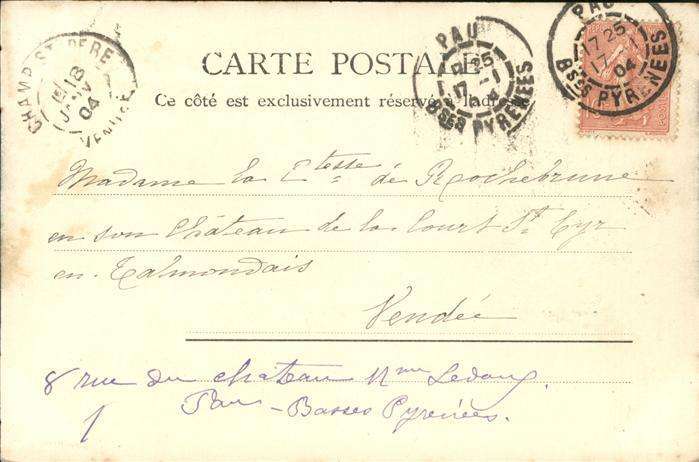 CARTE POSTALE
Ce côté est exclusivement réservé à l'adresse
CHAMP ST PERE
18
JANV
04
VENDÉE
PAU
17 25
17 -1
04
Bses PYRENEES
PAU
17 25
17 -1
04
Bses PYRENEES
Madame la Ctesse de Rochebrune
en son Château de la Court St Cyr
en Talmondais
Vendée
8 rue du chateau
Pau - Basses Pyrénées.